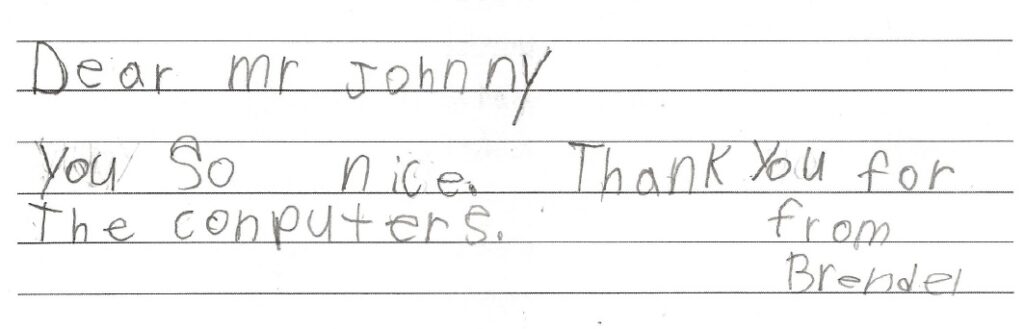 Dear mr Johnny
You So nice. Thank You for
the conputers.
from
Brendel